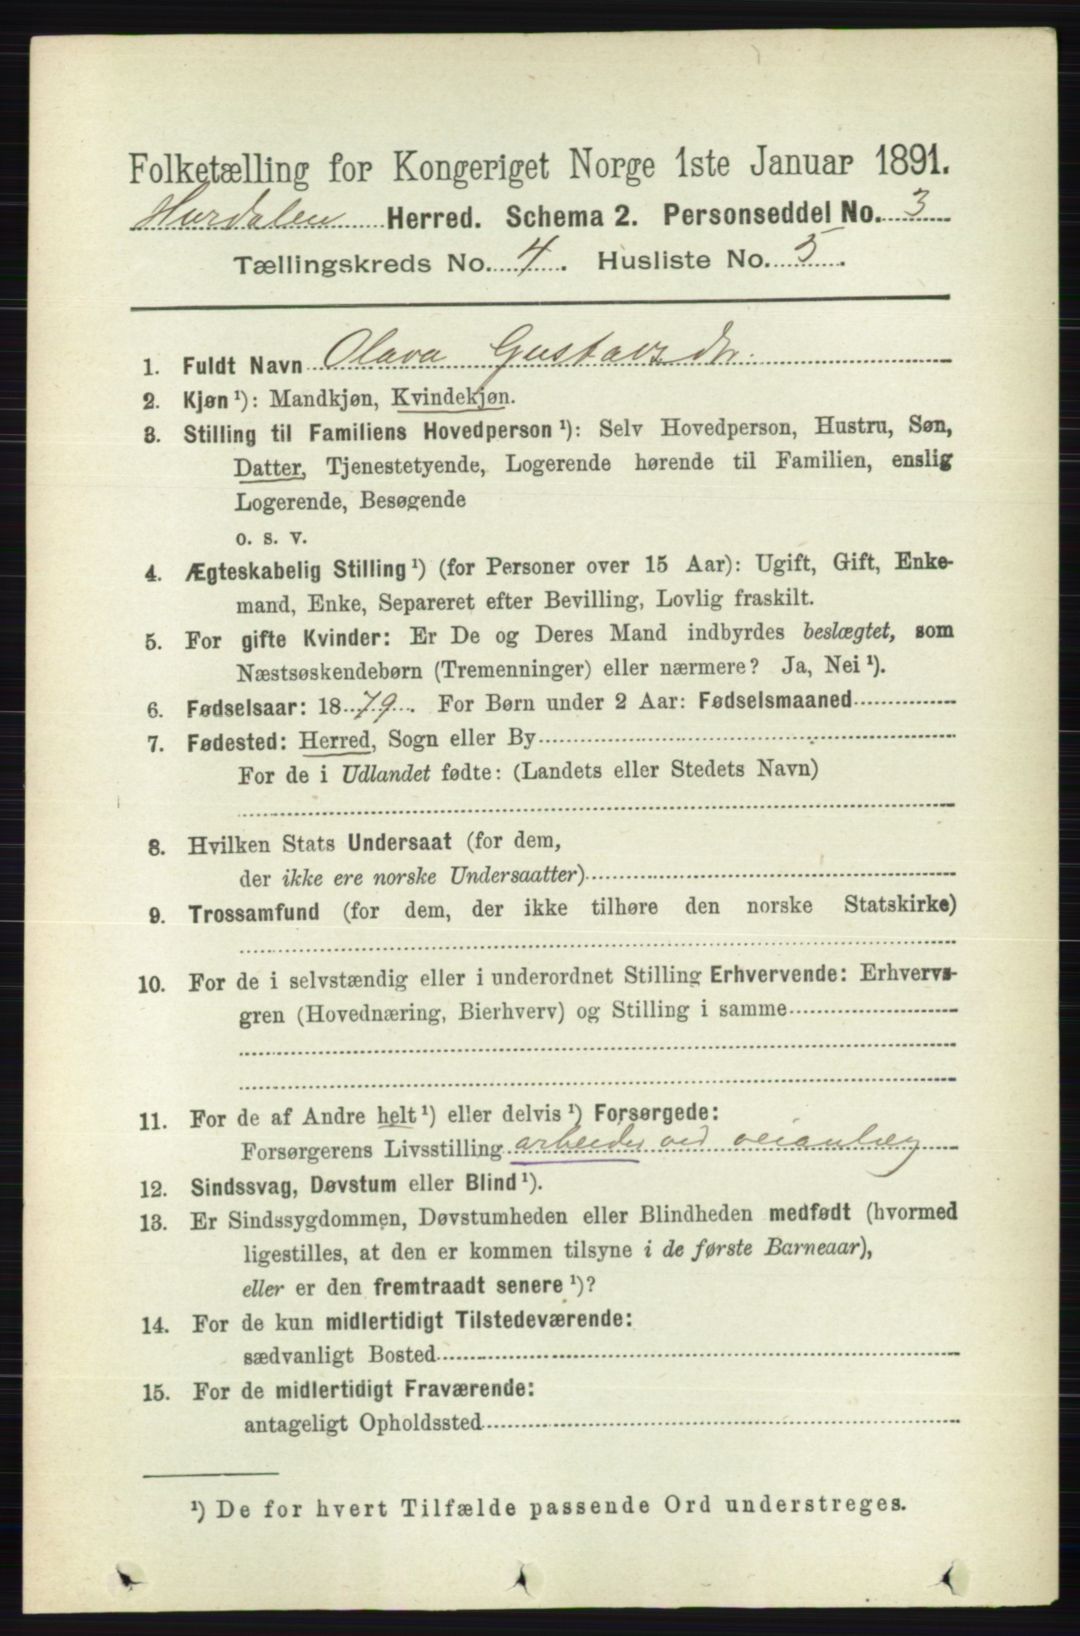 Folketælling for Kongeriget Norge 1ste Januar 1891.
Hurdalen Herred. Schema 2. Personseddel No. 3
Tællingskreds No. 4. Husliste No. 5.
1. Fuldt Navn Olava Gustavsdtr.
2. Kjøn ¹): Mandkjøn, Kvindekjøn.
3. Stilling til Familiens Hovedperson ¹): Selv Hovedperson, Hustru, Søn,
Datter, Tjenestetyende, Logerende hørende til Familien, enslig
Logerende, Besøgende
o. s. v.
4. Ægteskabelig Stilling ¹) (for Personer over 15 Aar): Ugift, Gift, Enke-
mand, Enke, Separeret efter Bevilling, Lovlig fraskilt.
5. For gifte Kvinder: Er De og Deres Mand indbyrdes beslægtet, som
Næstsøskendebørn (Tremenninger) eller nærmere? Ja, Nei ¹).
6. Fødselsaar: 1879. For Børn under 2 Aar: Fødselsmaaned
7. Fødested: Herred, Sogn eller By
For de i Udlandet fødte: (Landets eller Stedets Navn)
8. Hvilken Stats Undersaat (for dem,
der ikke ere norske Undersaatter)
9. Trossamfund (for dem, der ikke tilhøre den norske Statskirke)
10. For de i selvstændig eller i underordnet Stilling Erhvervende: Erhvervs-
gren (Hovednæring, Bierhverv) og Stilling i samme
11. For de af Andre helt ¹) eller delvis ¹) Forsørgede:
Forsørgerens Livsstilling arbeider ved veianlæg
12. Sindssvag, Døvstum eller Blind ¹).
13. Er Sindssygdommen, Døvstumheden eller Blindheden medfødt (hvormed
ligestilles, at den er kommen tilsyne i de første Barneaar),
eller er den fremtraadt senere ¹)?
14. For de kun midlertidigt Tilstedeværende:
sædvanligt Bosted
15. For de midlertidigt Fraværende:
antageligt Opholdssted
¹) De for hvert Tilfælde passende Ord understreges.